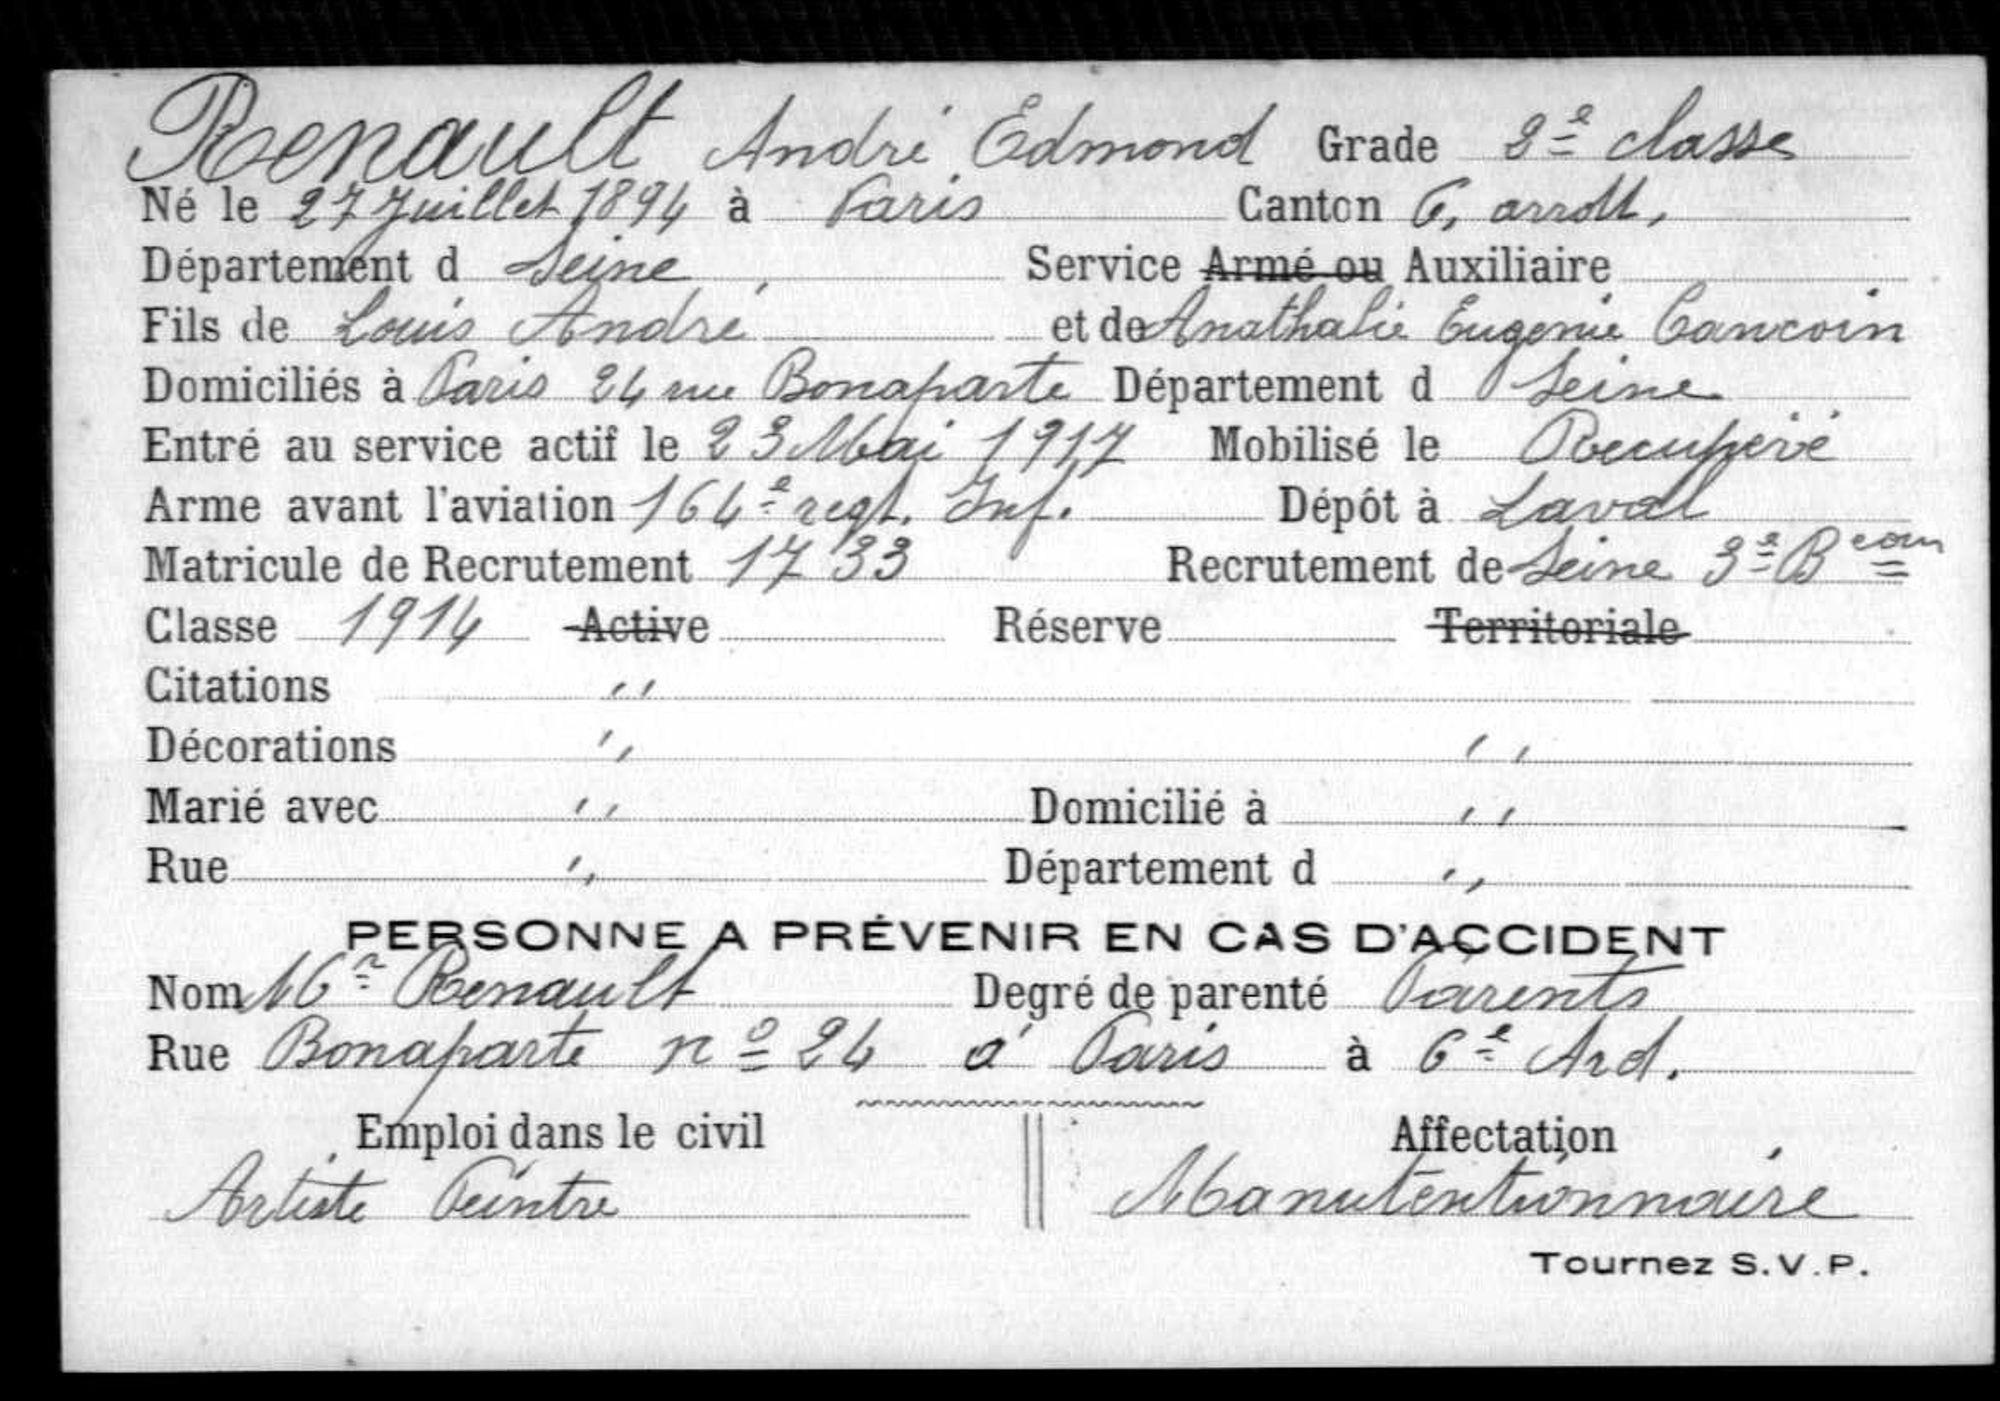 Renault André Edmond Grade 2e classe
Né le 27 Juillet 1894 à Paris Canton 6, arrdt,
Département d Seine, Service Armé ou Auxiliaire
Fils de Louis André et de Anathalie Eugenie Cancoin
Domiciliés à Paris 24 rue Bonaparte Département d Seine
Entré au service actif le 23 Mai 1917 Mobilisé le Recupéré
Arme avant l'aviation 164e regt. Inf. Dépôt à Laval
Matricule de Recrutement 1733 Recrutement de Seine 3e Beau
Classe 1914 Active Réserve Territoriale
Citations ,,
Décorations ,, ,,
Marié avec ,, Domicilié à ,,
Rue ,, Département d ,,
PERSONNE A PRÉVENIR EN CAS D'ACCIDENT
Nom Mr Renault Degré de parenté Parents
Rue Bonaparte no 24 à Paris à 6e Ard.
Emploi dans le civil Affectation
Artiste Peintre Manutentionnaire
Tournez S.V.P.